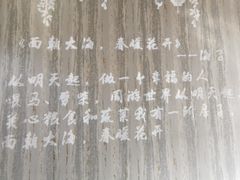 《面朝大海，春暖花开》
——海子
从明天起，做一个幸福的人
喂马、劈柴，周游世界从明天起，
关心粮食和蔬菜我有一所房子，
面朝大海，春暖花开